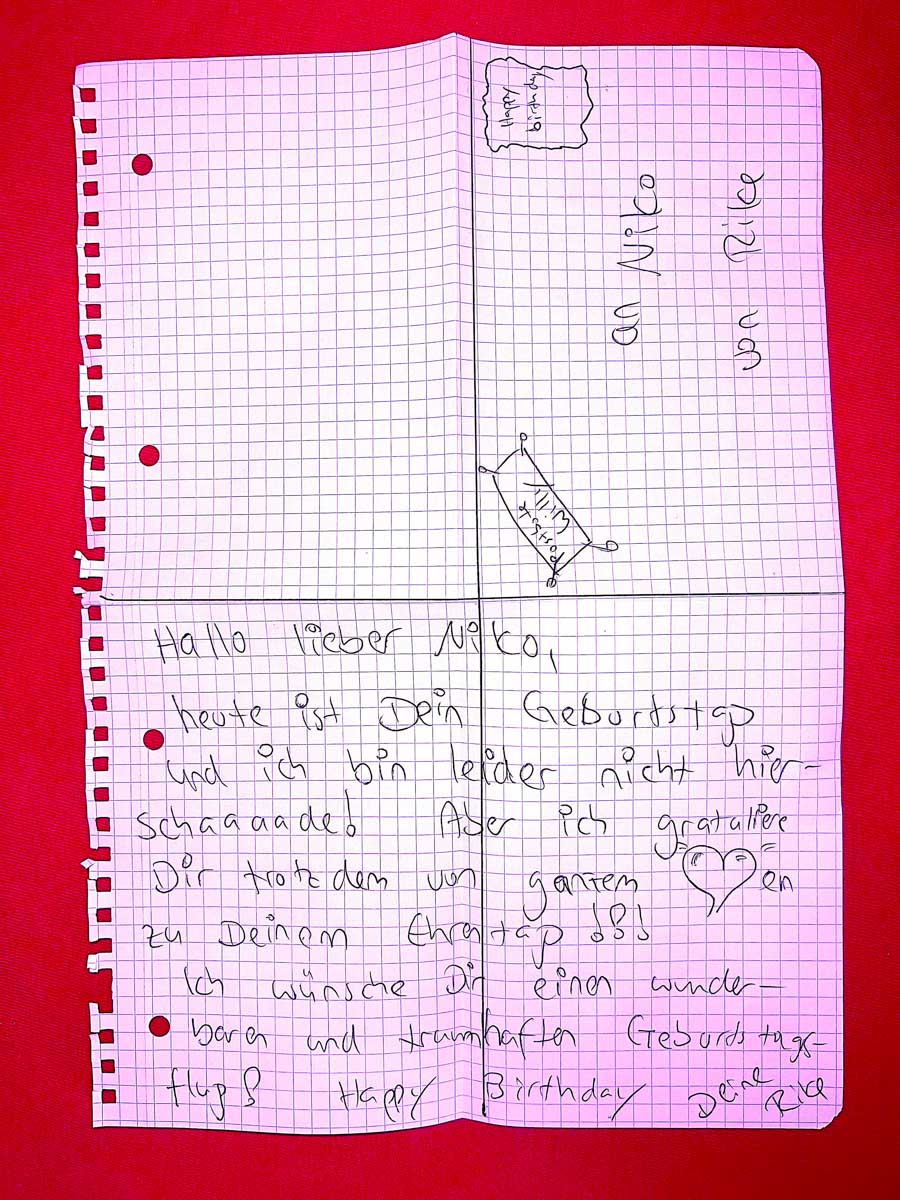 Happy
birthday
an Niko
von Rike
Hallo lieber Niko,
heute ist Dein Geburtstag
und ich bin leider nicht hier –
schaaaade! Aber ich grataliere
Dir trotzdem von ganzem ♡en
zu Deinem Ehrentag!!!
Ich wünsche Dir einen wunder–
baren und traumhaften Geburdstags–
flug! Happy Birthday Deine
Rike